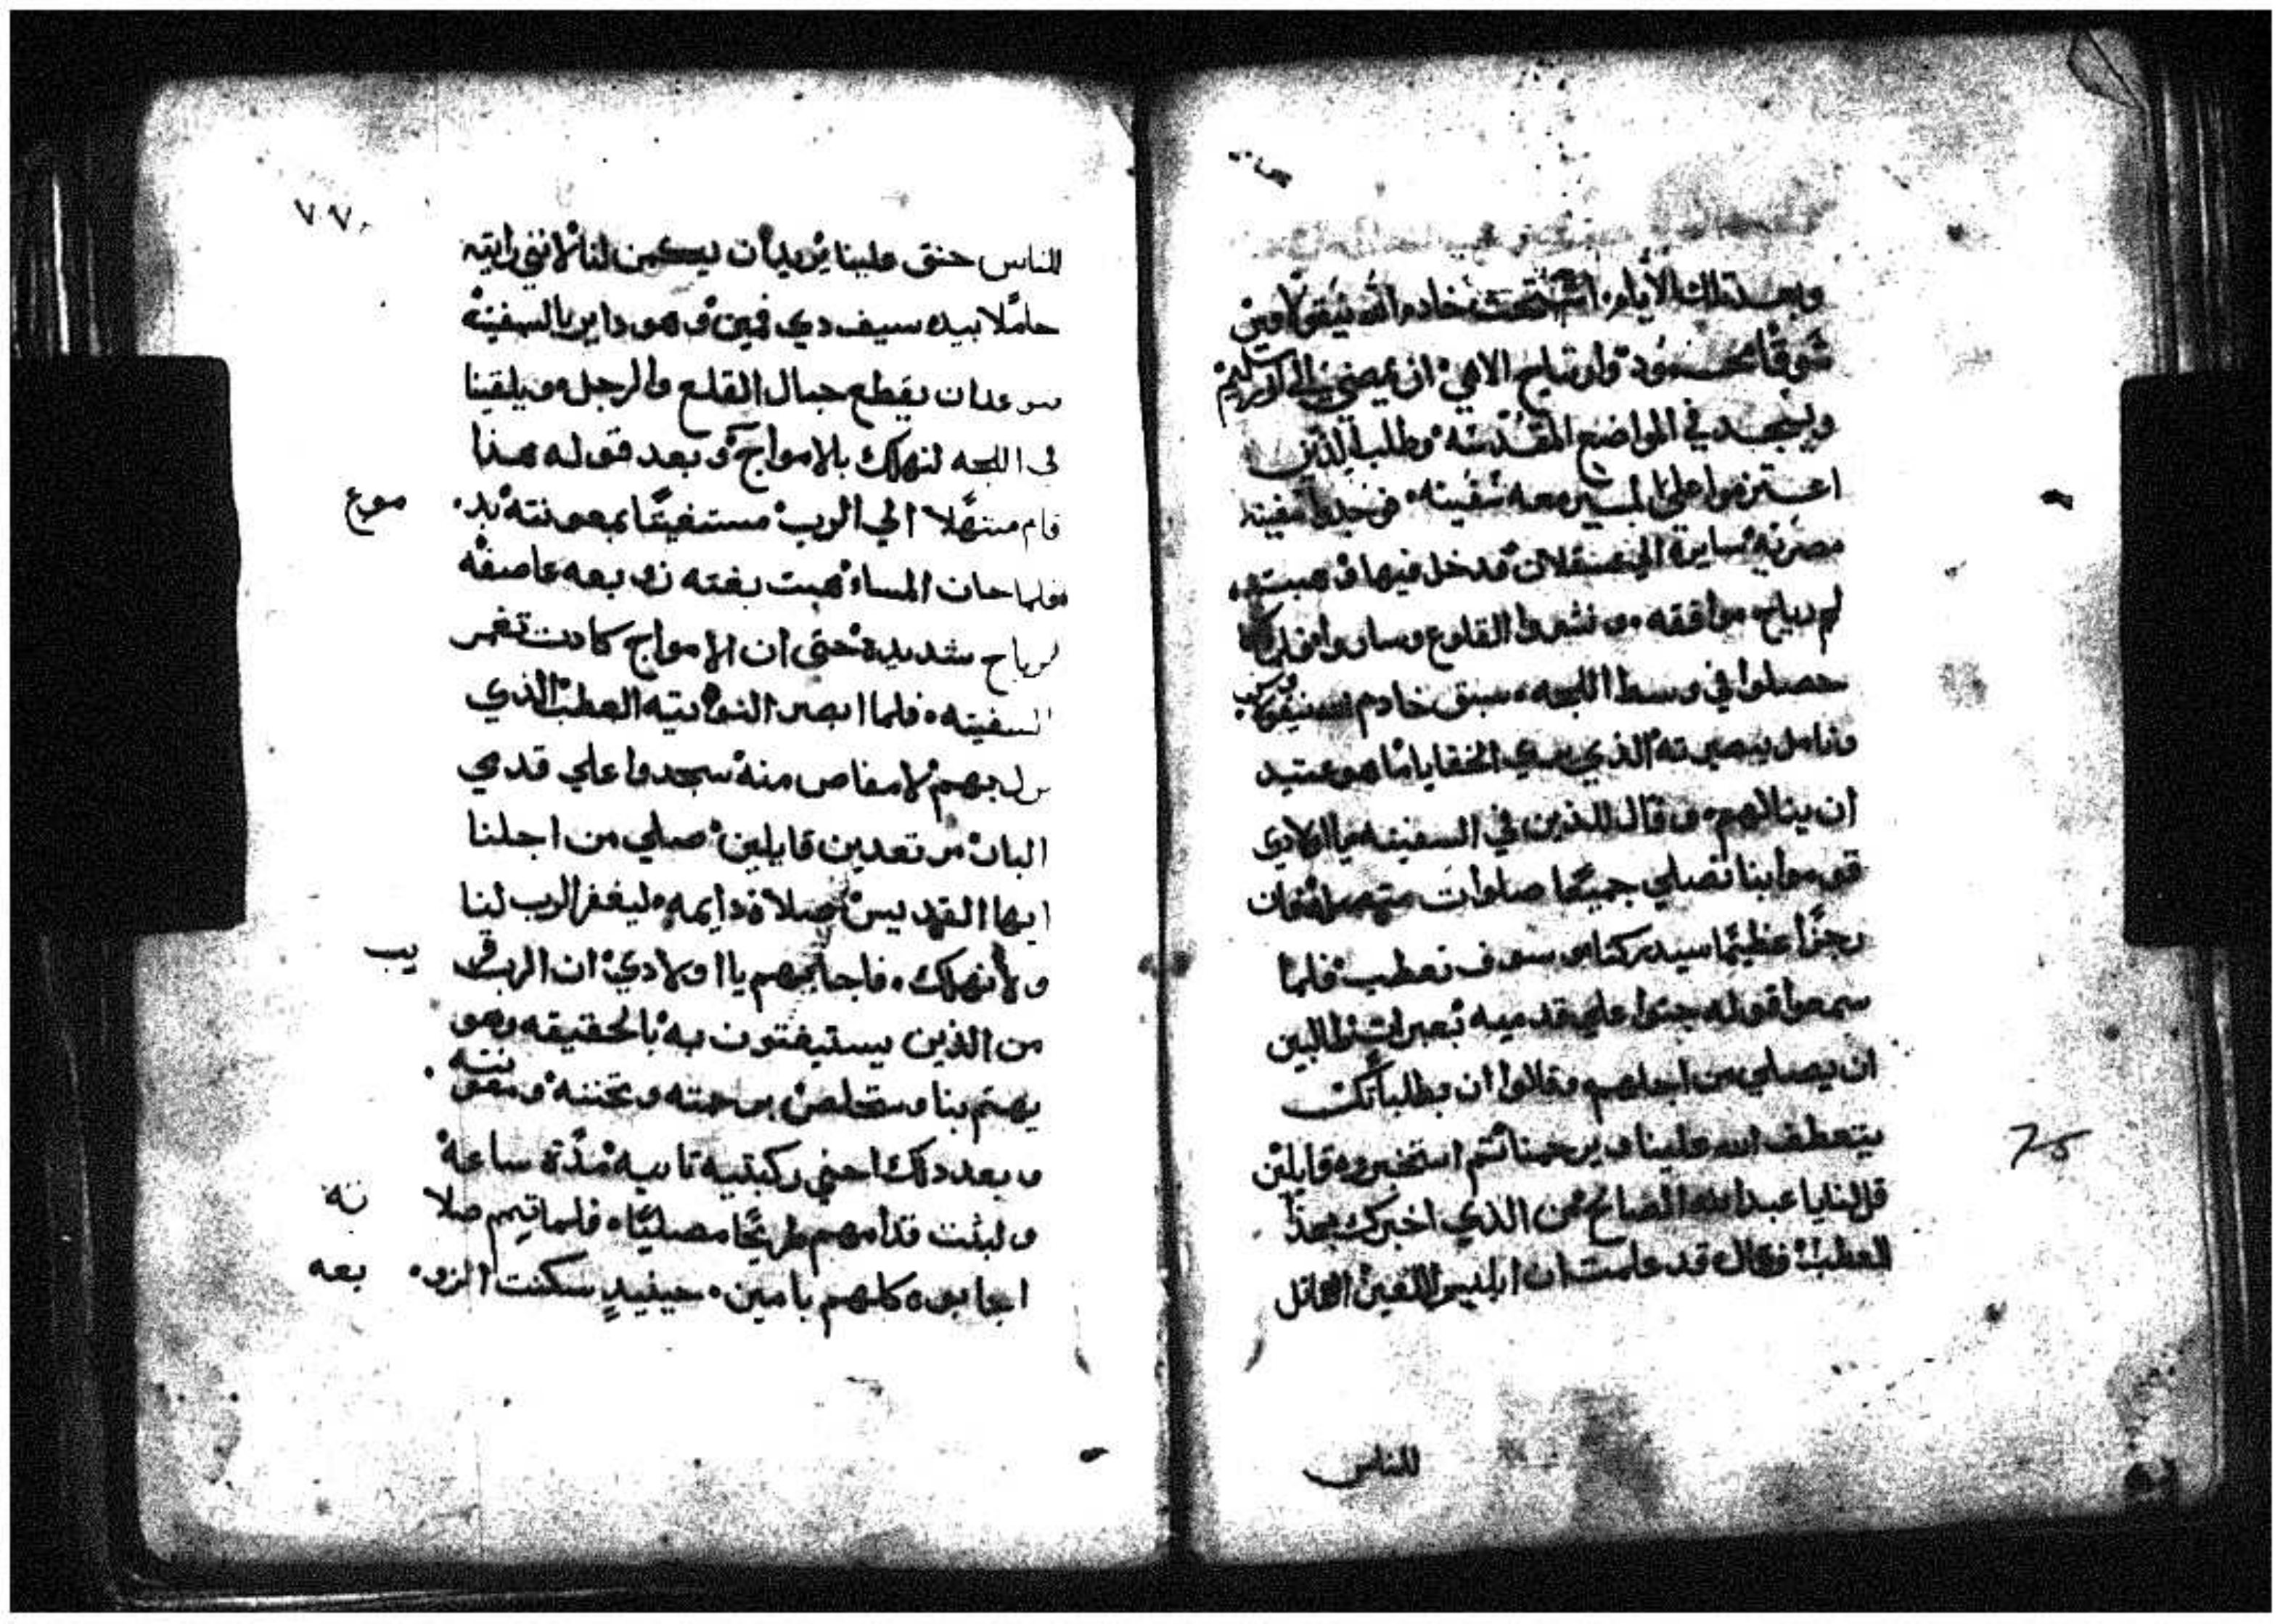 وبعد تلك الأيام اشتهت خادم الله نيقولاوس
شوقا وارتياح الاهي ان يمضي الى اورشليم
ويسجد في المواضع المقدسه وطلب الذين
اعتزموا على المسير معه سفينه فوجدوا سفينه
مصريه سايرة الى عسقلان فدخل فيها وهبت
لهم رياح موافقه ونشروا القلوع وساروا فلما
حصلوا في وسط اللجه سبق خادم
وتامل ببصيرته الذي الخفايا ما هو عتيد
ان ينالهم وقال للذين في السفينه يا اولادي
قوموا بنا نصلي جميعا صلوات فان
رجزا عظيما سيدركنا وسوف نعطب فلما
سمعوا قوله جثوا على قدميه بعبرات طالبين
ان يصلي من اجلهم وقالوا ان بطلباتك
يتعطف الله علينا ويرحمنا ثم استخبروه قايلين
قل لنا يا عبد الله الصالح من الذي اخبرك بهذا
العطب فقال قد علمت ان ابليس اللعين القاتل
للناس
75
٧٧
للناس حنق علينا يريد ان يكمن لنا لانني رايته
حاملا بيده سيف دي فمين وهو داير بالسفينه
عدان يقطع حبال القلع والرجل ويلقينا
في اللجه لنهلك بالامواج وبعد قوله هذا
قام مبتهلا الي الرب مستغيثا بمعونته بدموع
فلما حان المساء هبت بغته زوبعه عاصفه
لرياح شديدة حتى ان الامواج كادت تغمر
السفينه فلما ابصر النواتيه العطب الذي
نزل بهم لا مفاص منه سجدوا علي قدمي
البار مرتعدين قايلين صلي من اجلنا
ايها القديس صلاة دايمه وليغفر الرب لنا
ولا نهلك فاجابهم يا اولادي ان الرب قريب
من الذين يستيغتون به بالحقيقه وهو
يهتم بنا وسنخلص برحمته وتحننه ومعونته
وبعد دلك احني ركبتيه تانيه مدة ساعة
ولبثت قدامهم طريحا مصليا فلما تمم صلاته
اجابوه كلهم بامين حينيد سكنت الزوبعه